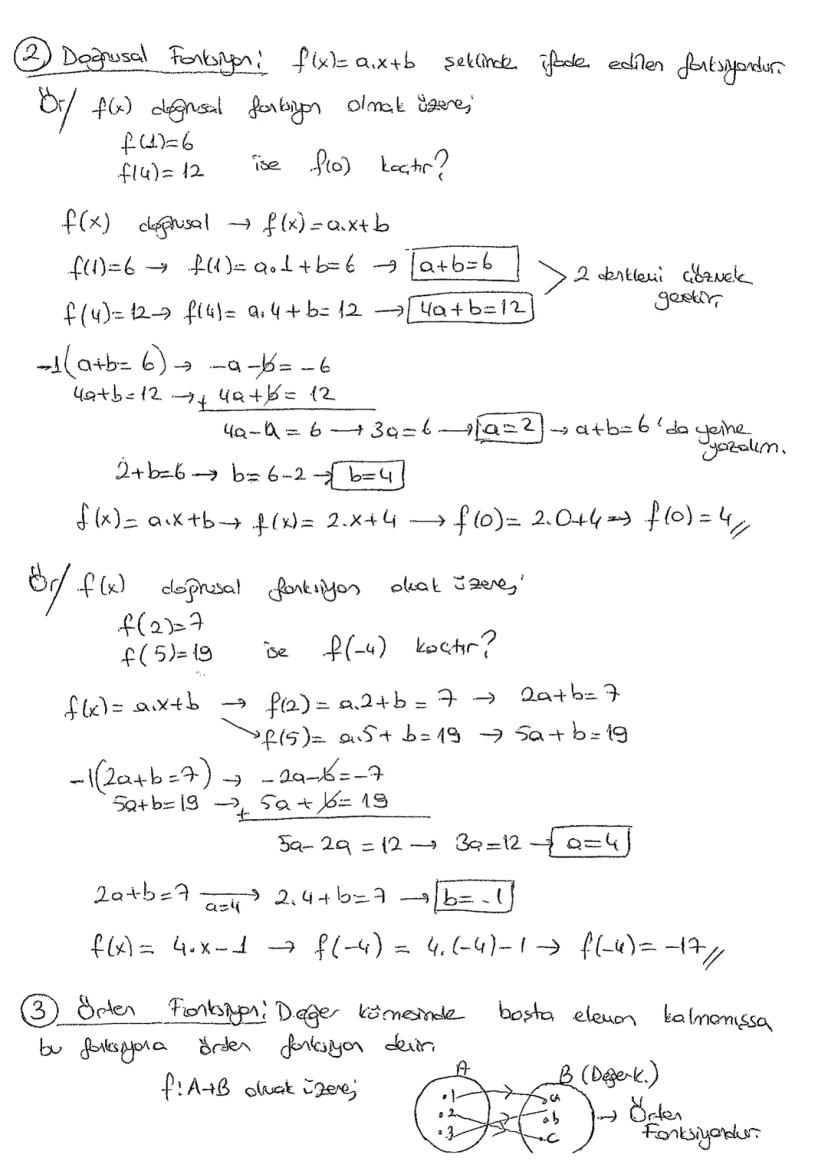 ② Doğrusal Fonksiyon: f(x)=a.x+b şeklinde ifade edilen fonksiyondur.
Ör/ f(x) doğrusal fonksiyon olmak üzere;
f(1)=6
f(4)=12 ise f(0) kaçtır?
f(x) doğrusal → f(x)=a.x+b
f(1)=6 → f(1)=a.1+b=6 → a+b=6
> 2 denklemi çözmek
gerekir.
f(4)=12→ f(4)=a.4+b=12 → 4a+b=12
-1(a+b=6) → -a-b=-6
4a+b=12 →+ 4a+b=12
4a-a=6 → 3a=6 → a=2 → a+b=6'da yerine
yazalım.
2+b=6 → b=6-2 → b=4
f(x)=a.x+b → f(x)=2.x+4 → f(0)=2.0+4 → f(0)=4//
Ör/ f(x) doğrusal fonksiyon olmak üzere;
f(2)=7
f(5)=19 ise f(-4) kaçtır?
f(x)=a.x+b → f(2)=a.2+b=7 → 2a+b=7
→ f(5)=a.5+b=19 → 5a+b=19
-1(2a+b=7) → -2a-b=-7
5a+b=19 →+ 5a+b=19
5a-2a=12 → 3a=12 → a=4
2a+b=7 → 2.4+b=7 → b=-1
a=4
f(x)=4.x-1 → f(-4)=4.(-4)-1 → f(-4)=-17//
③ Örten Fonksiyon: Değer kümesinde boşta eleman kalmamışsa
bu fonksiyona örten fonksiyon denir.
f:A→B olmak üzere;
A B (Değer k.)
.1 .a
.2 .b → Örten
.3 .c Fonksiyondur.